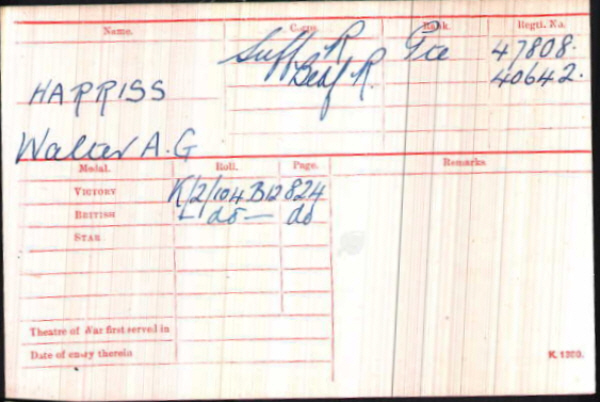 Name. Corps. Rank. Regtl. No.
HARRISS Suff R Pte 47808.
Walter A.G Bedf R. 40642.
Medal. Roll. Page. Remarks.
VICTORY K/2/104 B12 824
BRITISH — do — do
STAR
Theatre of War first served in
Date of entry therein
K. 1380.